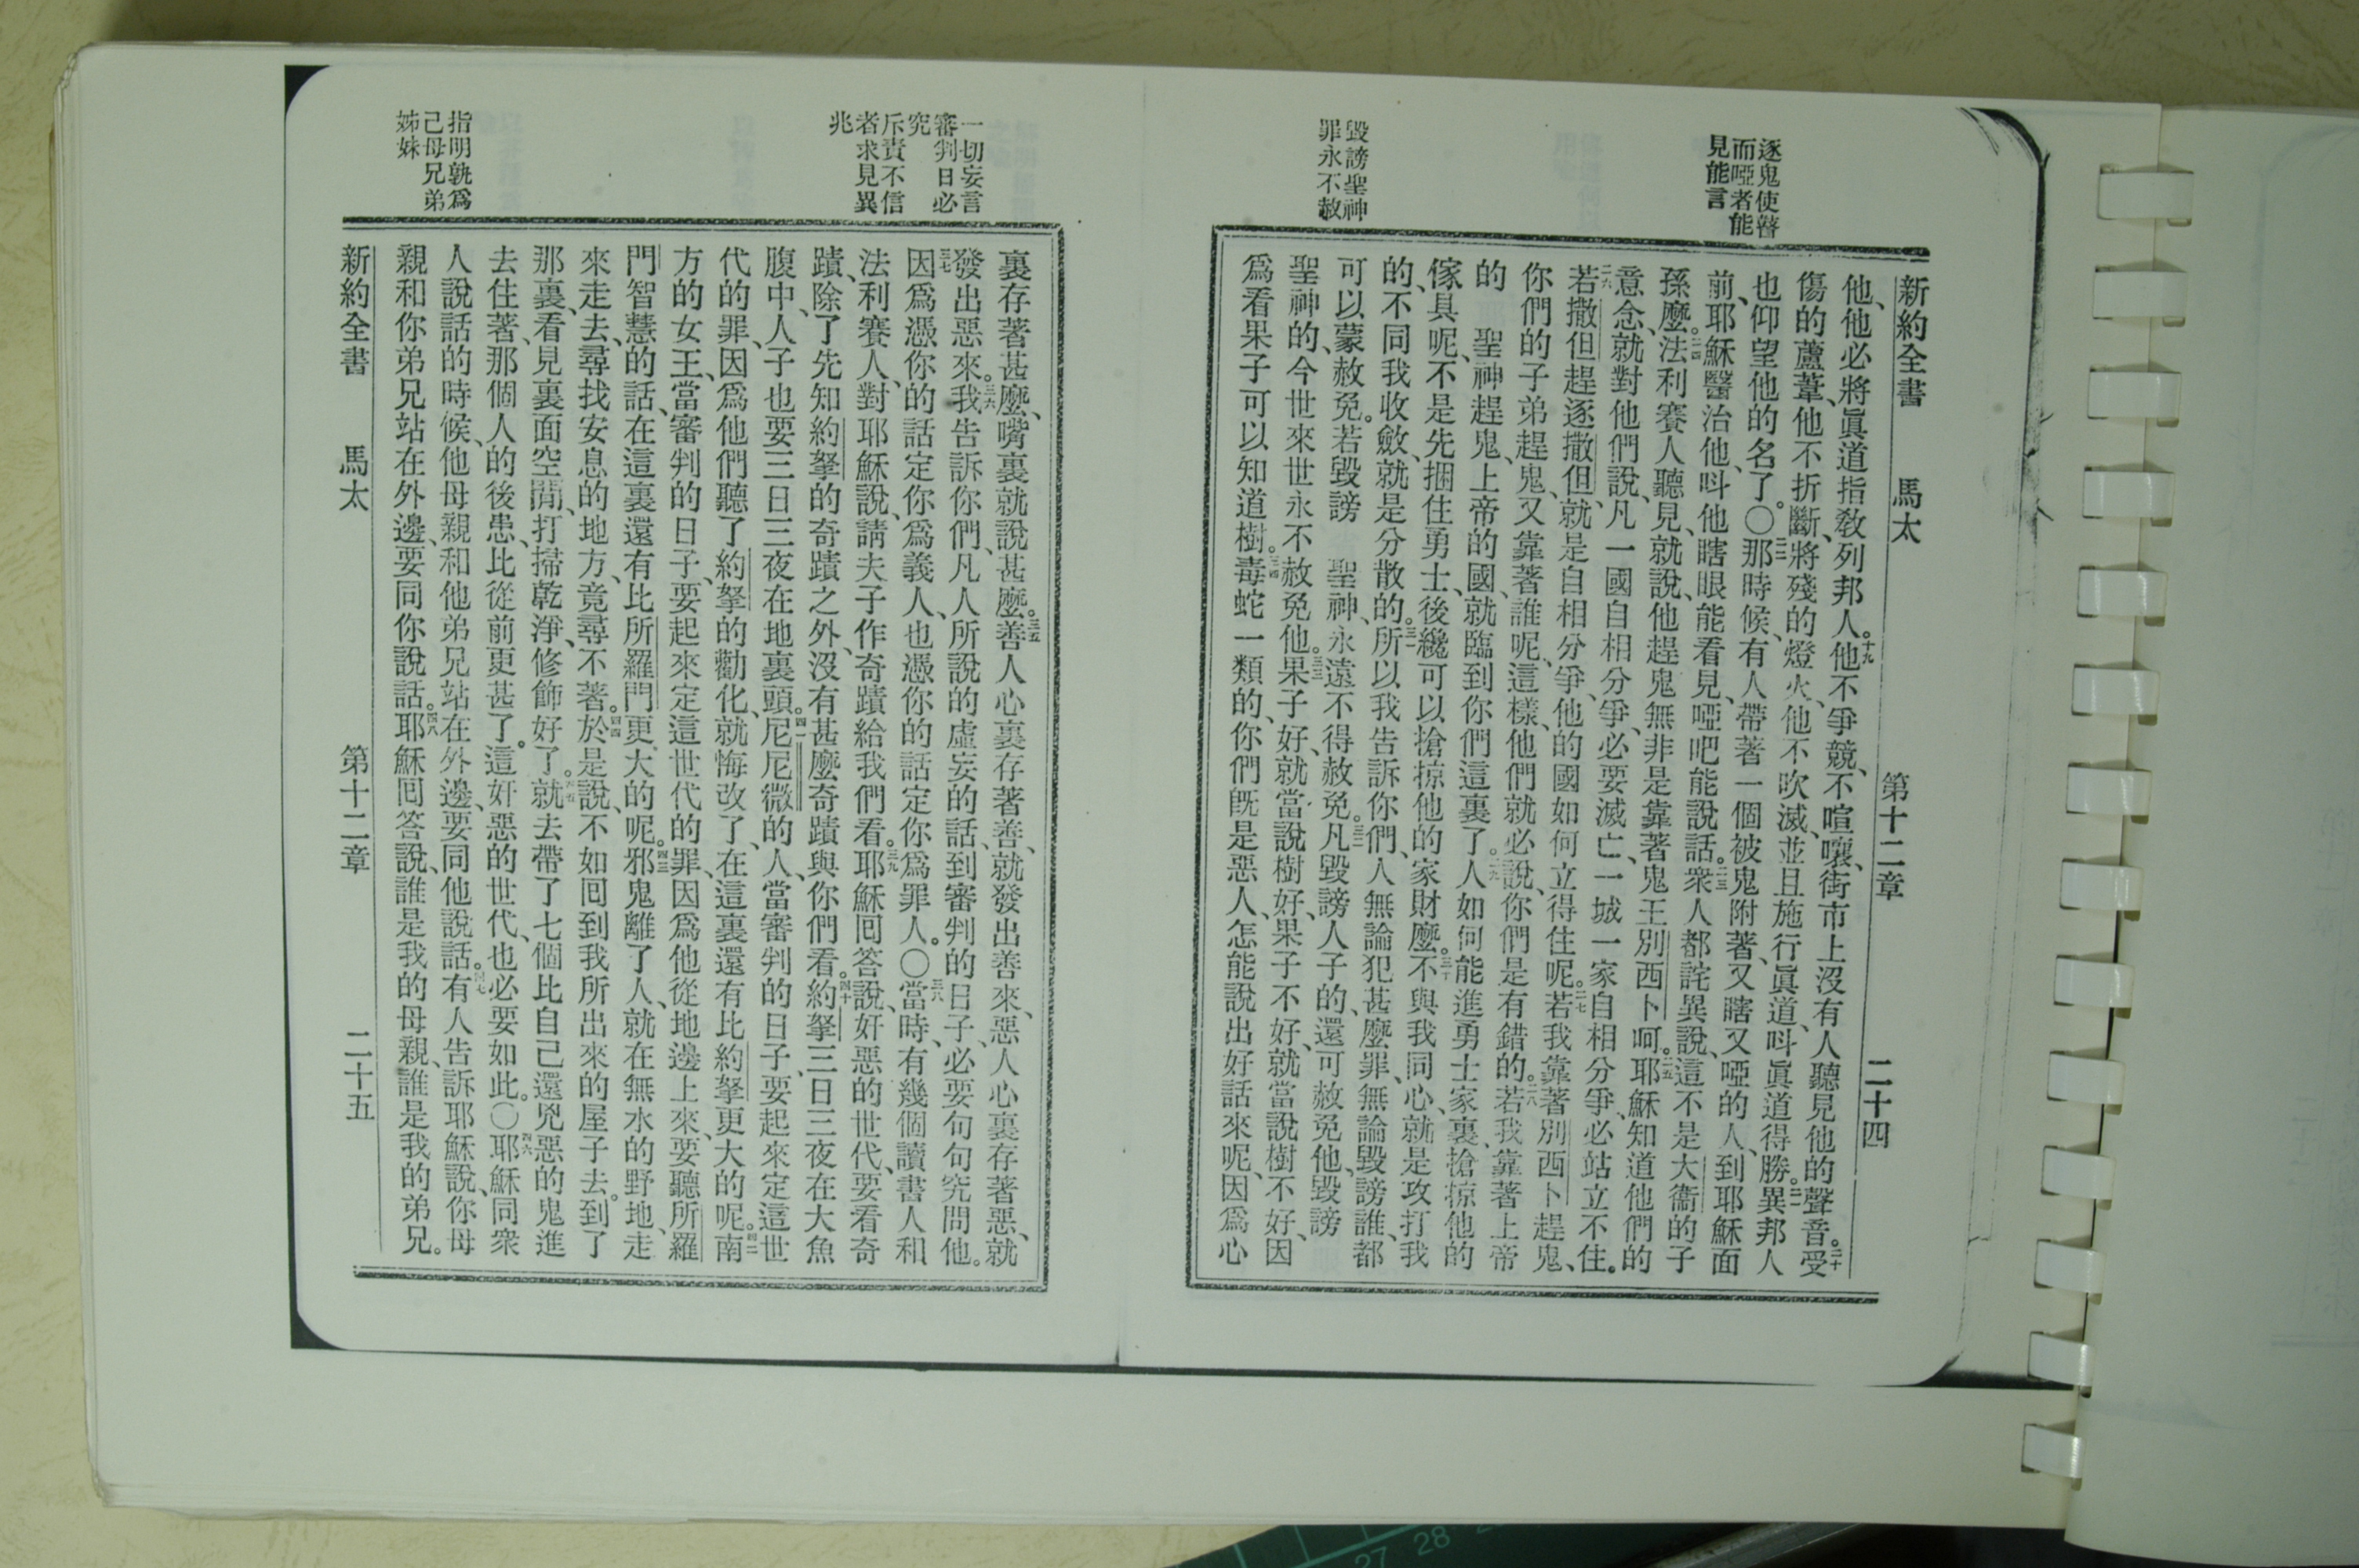 新約全書 馬太 第十二章 二十四
逐鬼使瞽
而啞者能
見能言
毀謗聖神
罪永不赦
他、他必將眞道指教列邦人。十九他不爭競、不喧嚷、街市上沒有人聽見他的聲音。二十受
傷的蘆葦、他不折斷、將殘的燈火、他不吹滅、並且施行眞道、呌眞道得勝。二一異邦人
也仰望他的名了。〇二二那時候、有人帶著一個被鬼附著、又瞎又啞的人、到耶穌面
前、耶穌醫治他、呌他瞎眼能看見、啞吧能說話。二三衆人都詫異說、這不是大衞的子
孫麼。二四法利賽人聽見、就說、他趕鬼無非是靠著鬼王別西卜呵。二五耶穌知道他們的
意念、就對他們說、凡一國自相分爭、必要滅亡、一城一家自相分爭、必站立不住。
二六若撒但趕逐撒但、就是自相分爭、他的國如何立得住呢。二七若我靠著別西卜趕鬼、
你們的子弟趕鬼、又靠著誰呢、這樣、他們就必說、你們是有錯的。二八若我靠著上帝
的 聖神趕鬼、上帝的國、就臨到你們這裏了。二九人如何能進勇士家裏、搶掠他的
傢具呢、不是先捆住勇士、後纔可以搶掠他的家財麼。三十不與我同心、就是攻打我
的、不同我收斂、就是分散的。三一所以我告訴你們、人無論犯甚麼罪、無論毀謗誰、都
可以蒙赦免。若毀謗 聖神、永遠不得赦免。三二凡毀謗人子的、還可赦免他、毀謗
聖神的、今世來世永不赦免他。三三果子好、就當說樹好、果子不好、就當說樹不好、因
爲看果子可以知道樹。三四毒蛇一類的、你們旣是惡人、怎能說出好話來呢、因爲心
一切妄言
審判日必
究
斥責不信
者求見異
兆
指明孰爲
己母兄弟
姊妹
裏存著甚麼、嘴裏就說甚麼。三五善人心裏存著善、就發出善來、惡人心裏存著惡、就
發出惡來。三六我告訴你們、凡人所說的虛妄的話、到審判的日子、必要句句究問他。
三七因爲憑你的話定你爲義人、也憑你的話定你爲罪人。〇三八當時、有幾個讀書人和
法利賽人、對耶穌說、請夫子作奇蹟給我們看。三九耶穌囘答說、奸惡的世代、要看奇
蹟、除了先知約拏的奇蹟之外、沒有甚麼奇蹟與你們看。四十約拏三日三夜在大魚
腹中、人子也要三日三夜在地裏頭。四一尼尼微的人、當審判的日子、要起來定這世
代的罪、因爲他們聽了約拏的勸化、就悔改了、在這裏還有比約拏更大的呢。四二南
方的女王、當審判的日子、要起來定這世代的罪、因爲他從地邊上來、要聽所羅
門智慧的話、在這裏還有比所羅門更大的呢。四三邪鬼離了人、就在無水的野地、走
來走去、尋找安息的地方、竟尋不著。四四於是說、不如囘到我所出來的屋子去。到了
那裏、看見裏面空閒、打掃乾淨、修飾好了。四五就去帶了七個比自己還兇惡的鬼進
去住著、那個人的後患、比從前更甚了。這奸惡的世代、也必要如此。〇四六耶穌同衆
人說話的時候、他母親和他弟兄站在外邊、要同他說話。四七有人告訴耶穌說、你母
親和你弟兄站在外邊、要同你說話。四八耶穌囘答說、誰是我的母親、誰是我的弟兄。
新約全書 馬太 第十二章 二十五
27 28